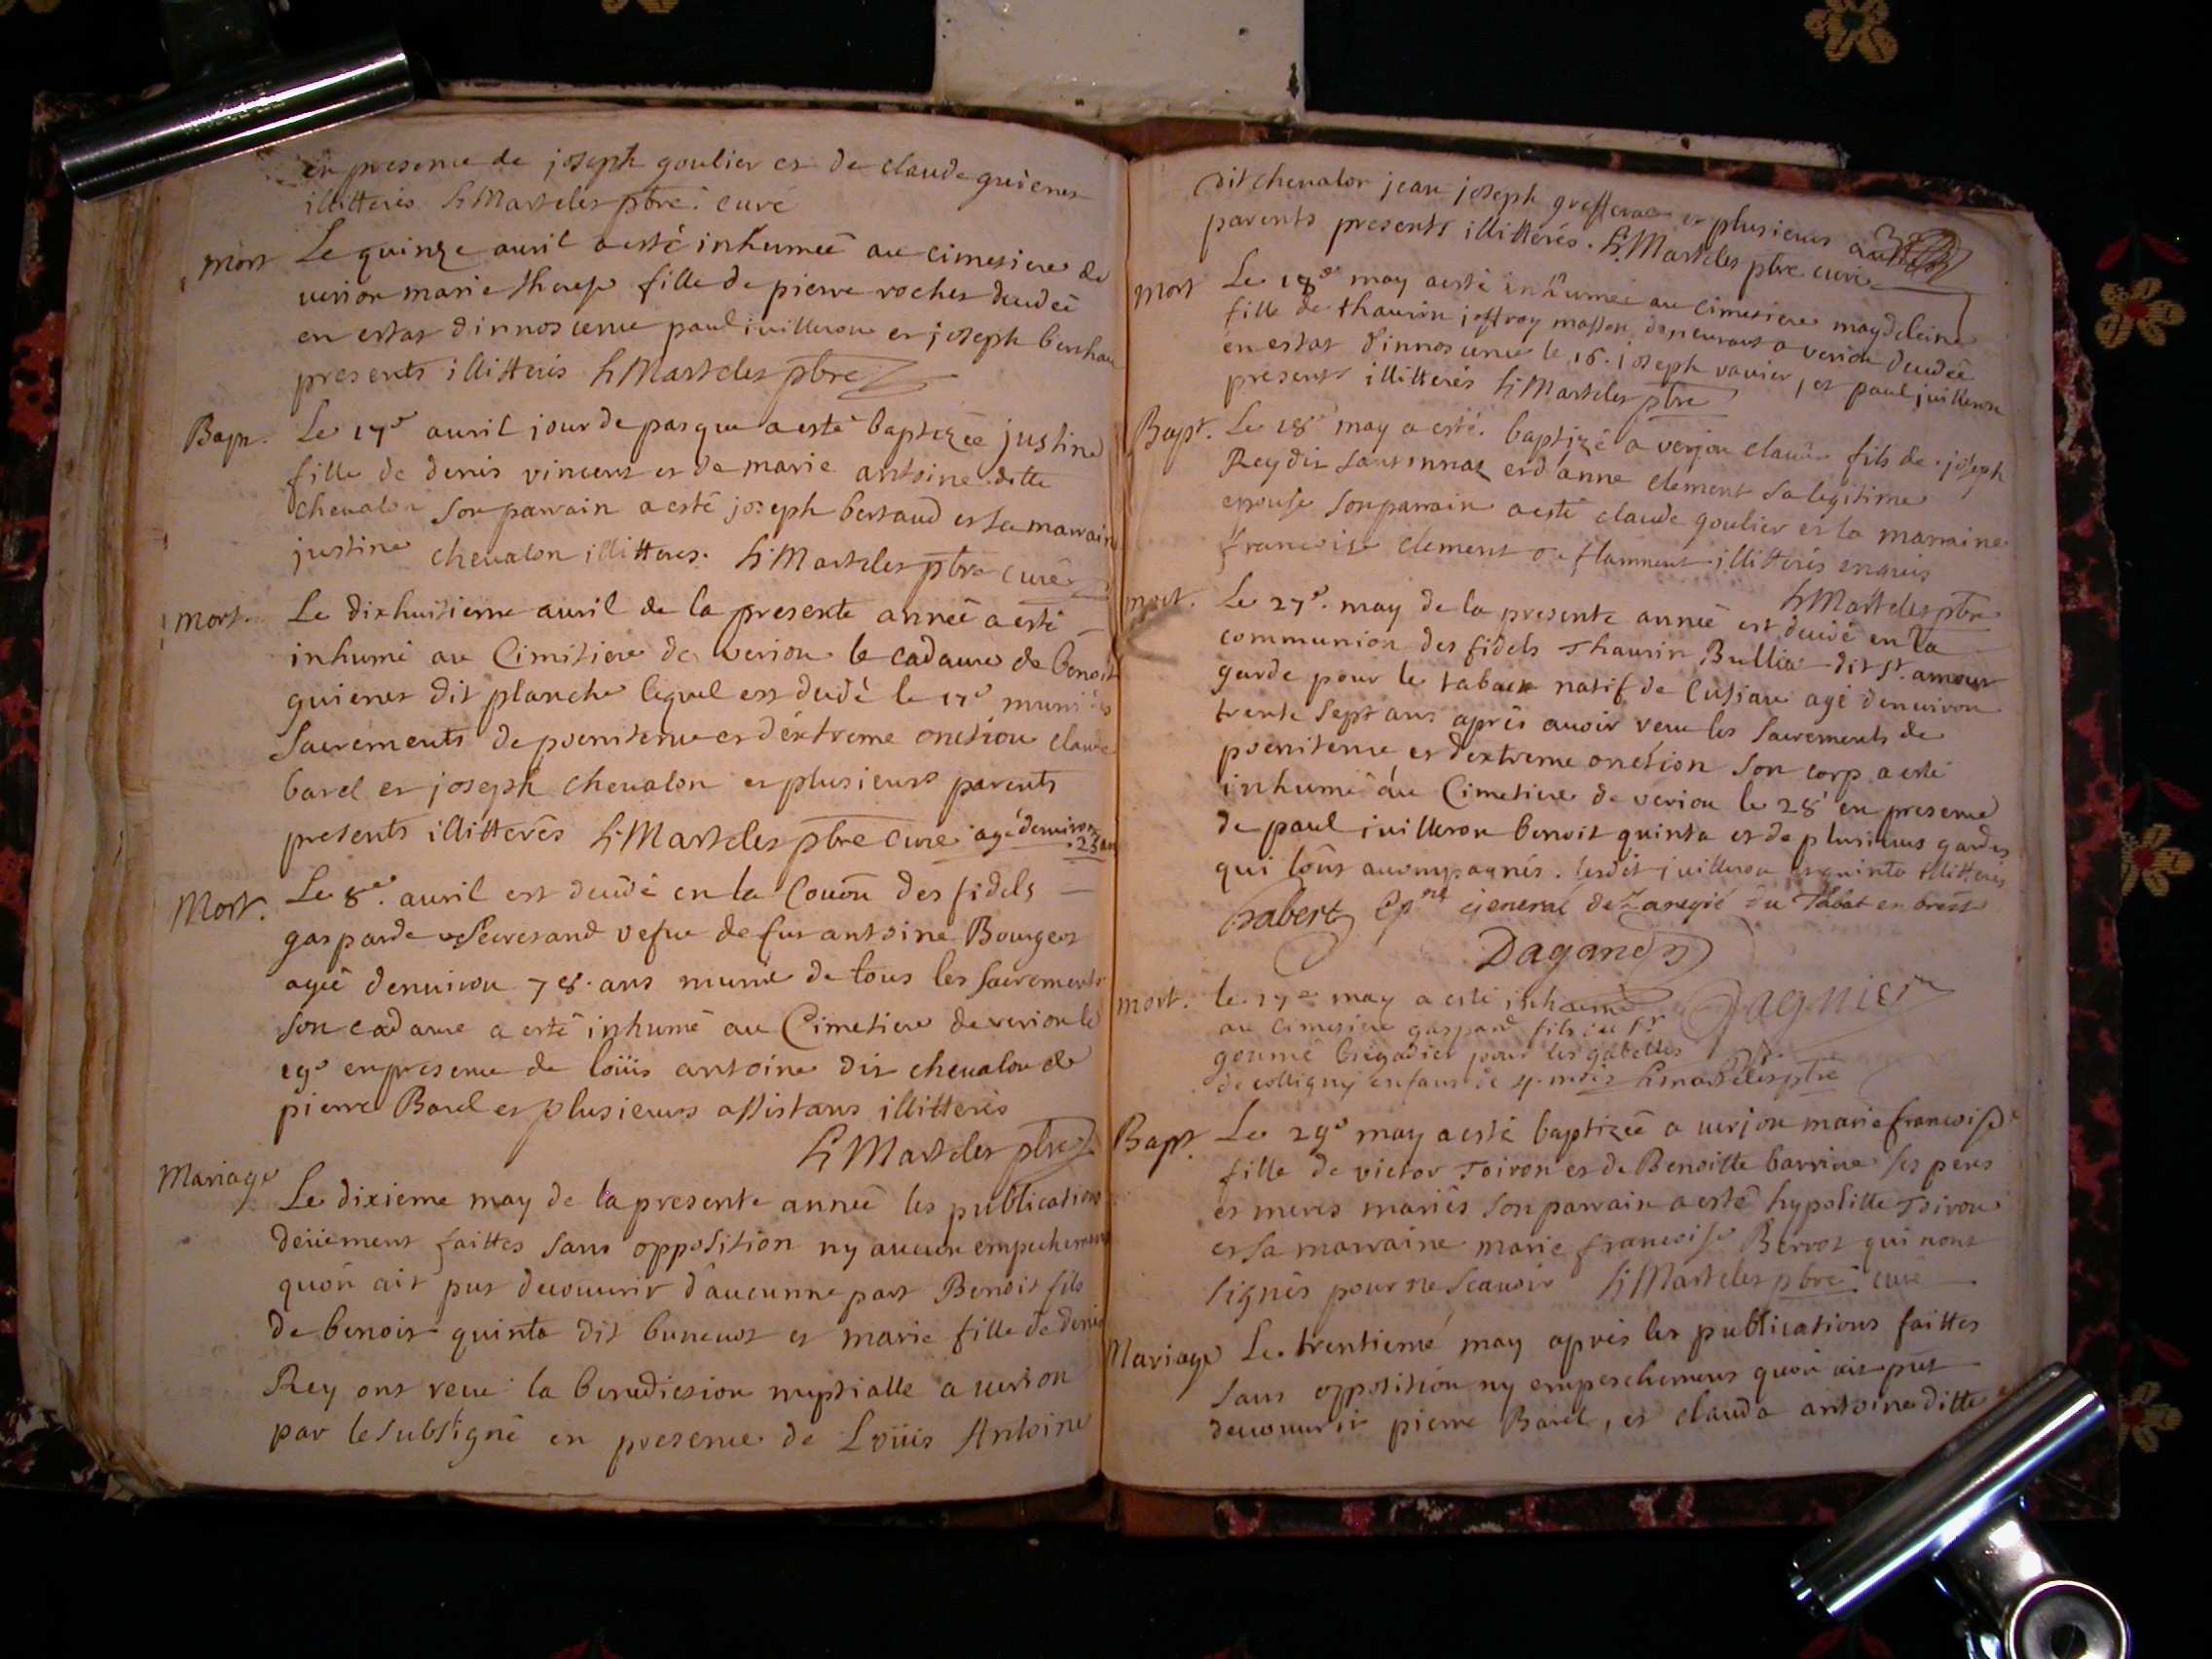 en presence de joseph goulier et de claude guienet
illitterés h Marteles pbre. curé
mort Le quinze auril a esté inhumeé au cimetiere de
verion marie therese fille de pierre rochet decedeé
en estat dinnoscence paul iuilleron et joseph berthau
presents illitterés h Marteles pbre
Bapt. Le 17e auril jour de pasque a esté baptizeé justine
fille de denis vincent et de marie antoine ditte
chevalon son parrain a esté joseph bertaud et sa marraine
justine chevalon illitteres. h Marteles pbre curé
mort. Le dixhuitieme auril de la presente anneé a esté
inhumé au Cimitiere de verion le cadavre de benoit
guienet dit planche lequel est decedé le 17e muni des
Sacrements de poenitence et d'éxtreme onction claude
barel et joseph chevalon et plusieurs parents
presents illitterés h Marteles pbre curé agé denuiron
23 an
Mort. Le 8e. auril est decedé en la Couon des fidels
gasparde Secretand vefue de fut antoine Bourgeot
ageé denuiron 78. ans munie de tous les sacrements
son cadavre a esté inhumé au Cimetiere de verion le
19e en presence de loüis antoine dit chevalon de
pierre Barel et plusieurs assistans illitterés
h Marteles pbre
Mariage Le dixieme may de la presente anneé les publications
deüement faittes sans opposition ny aucun empechement
quon ait put decouurir d'aucunne part Benoit fils
de benoit quinta dit buneuot et marie fille de denis
Rey ont receu la benediction nuptialle a verion
par le subsigné en presence de Loüis Antoine
dit chevalon jean joseph et plusieurs
parents presents illitterés. h Marteles pbre curé
mort Le 18e may a esté inhumée au cimetiere magdeleine
fille de thaurin joffray masson demeurant a verion decedeé
en estat d'innoscence le 16. joseph vavier, et paul juilleron
presents illitterés h Marteles pbre
Bapt. Le 18e may a esté. baptizé a verjon claude fils de joseph
Rey dit et d'anne clement sa legitime
epouse son parrain a esté claude goulier et la marraine
francoise clement illitterés enquis
h Marteles pbre
mort. Le 27e. may de la presente anneé est decedé en la
communion des fidels Thaurin Bullia dit st. amour
garde pour le tabac natif de Cusiau agé denuiron
trente sept ans aprés auoir receu les Sacrements de
poenitence et dextreme onction son corp a esté
inhumé au Cimetiere de verion le 28e en presence
de paul iuilleron benoit quinta et de plusieurs gardes
qui l'ont accompagnés. lesdit juilleron et quinta illitterés
habert general de la regie du Tabac en bresse
Dagand
mort. le 17e may a esté inhumé Dagnier
au cimetiere gaspard fils du sr
goumé brigadier pour les gabelles
de colligny enfant de 4. mois h marteles pbre
Bapt. Le 29e may a esté baptizeé a verjon marie francoise
fille de victor Toiron et de Benoitte barrine ses peres
et meres mariés son parrain a esté hypolitte Toiron
et sa marraine marie francoise Berrot qui nont
signés pour ne scauoir h Marteles pbre curé
Mariage Le trentiemé may aprés les publications faittes
sans opposition ny empeschement quon ait put
decouurir pierre Barel, et clauda antoine ditte